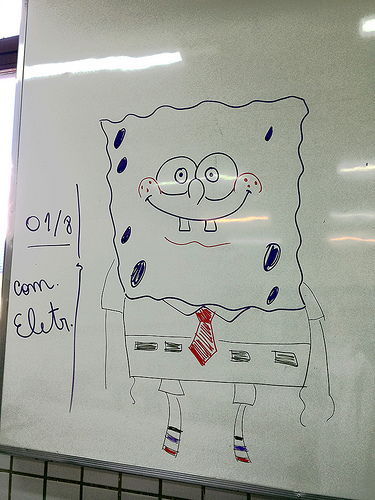 01/8
com.
Eletr.